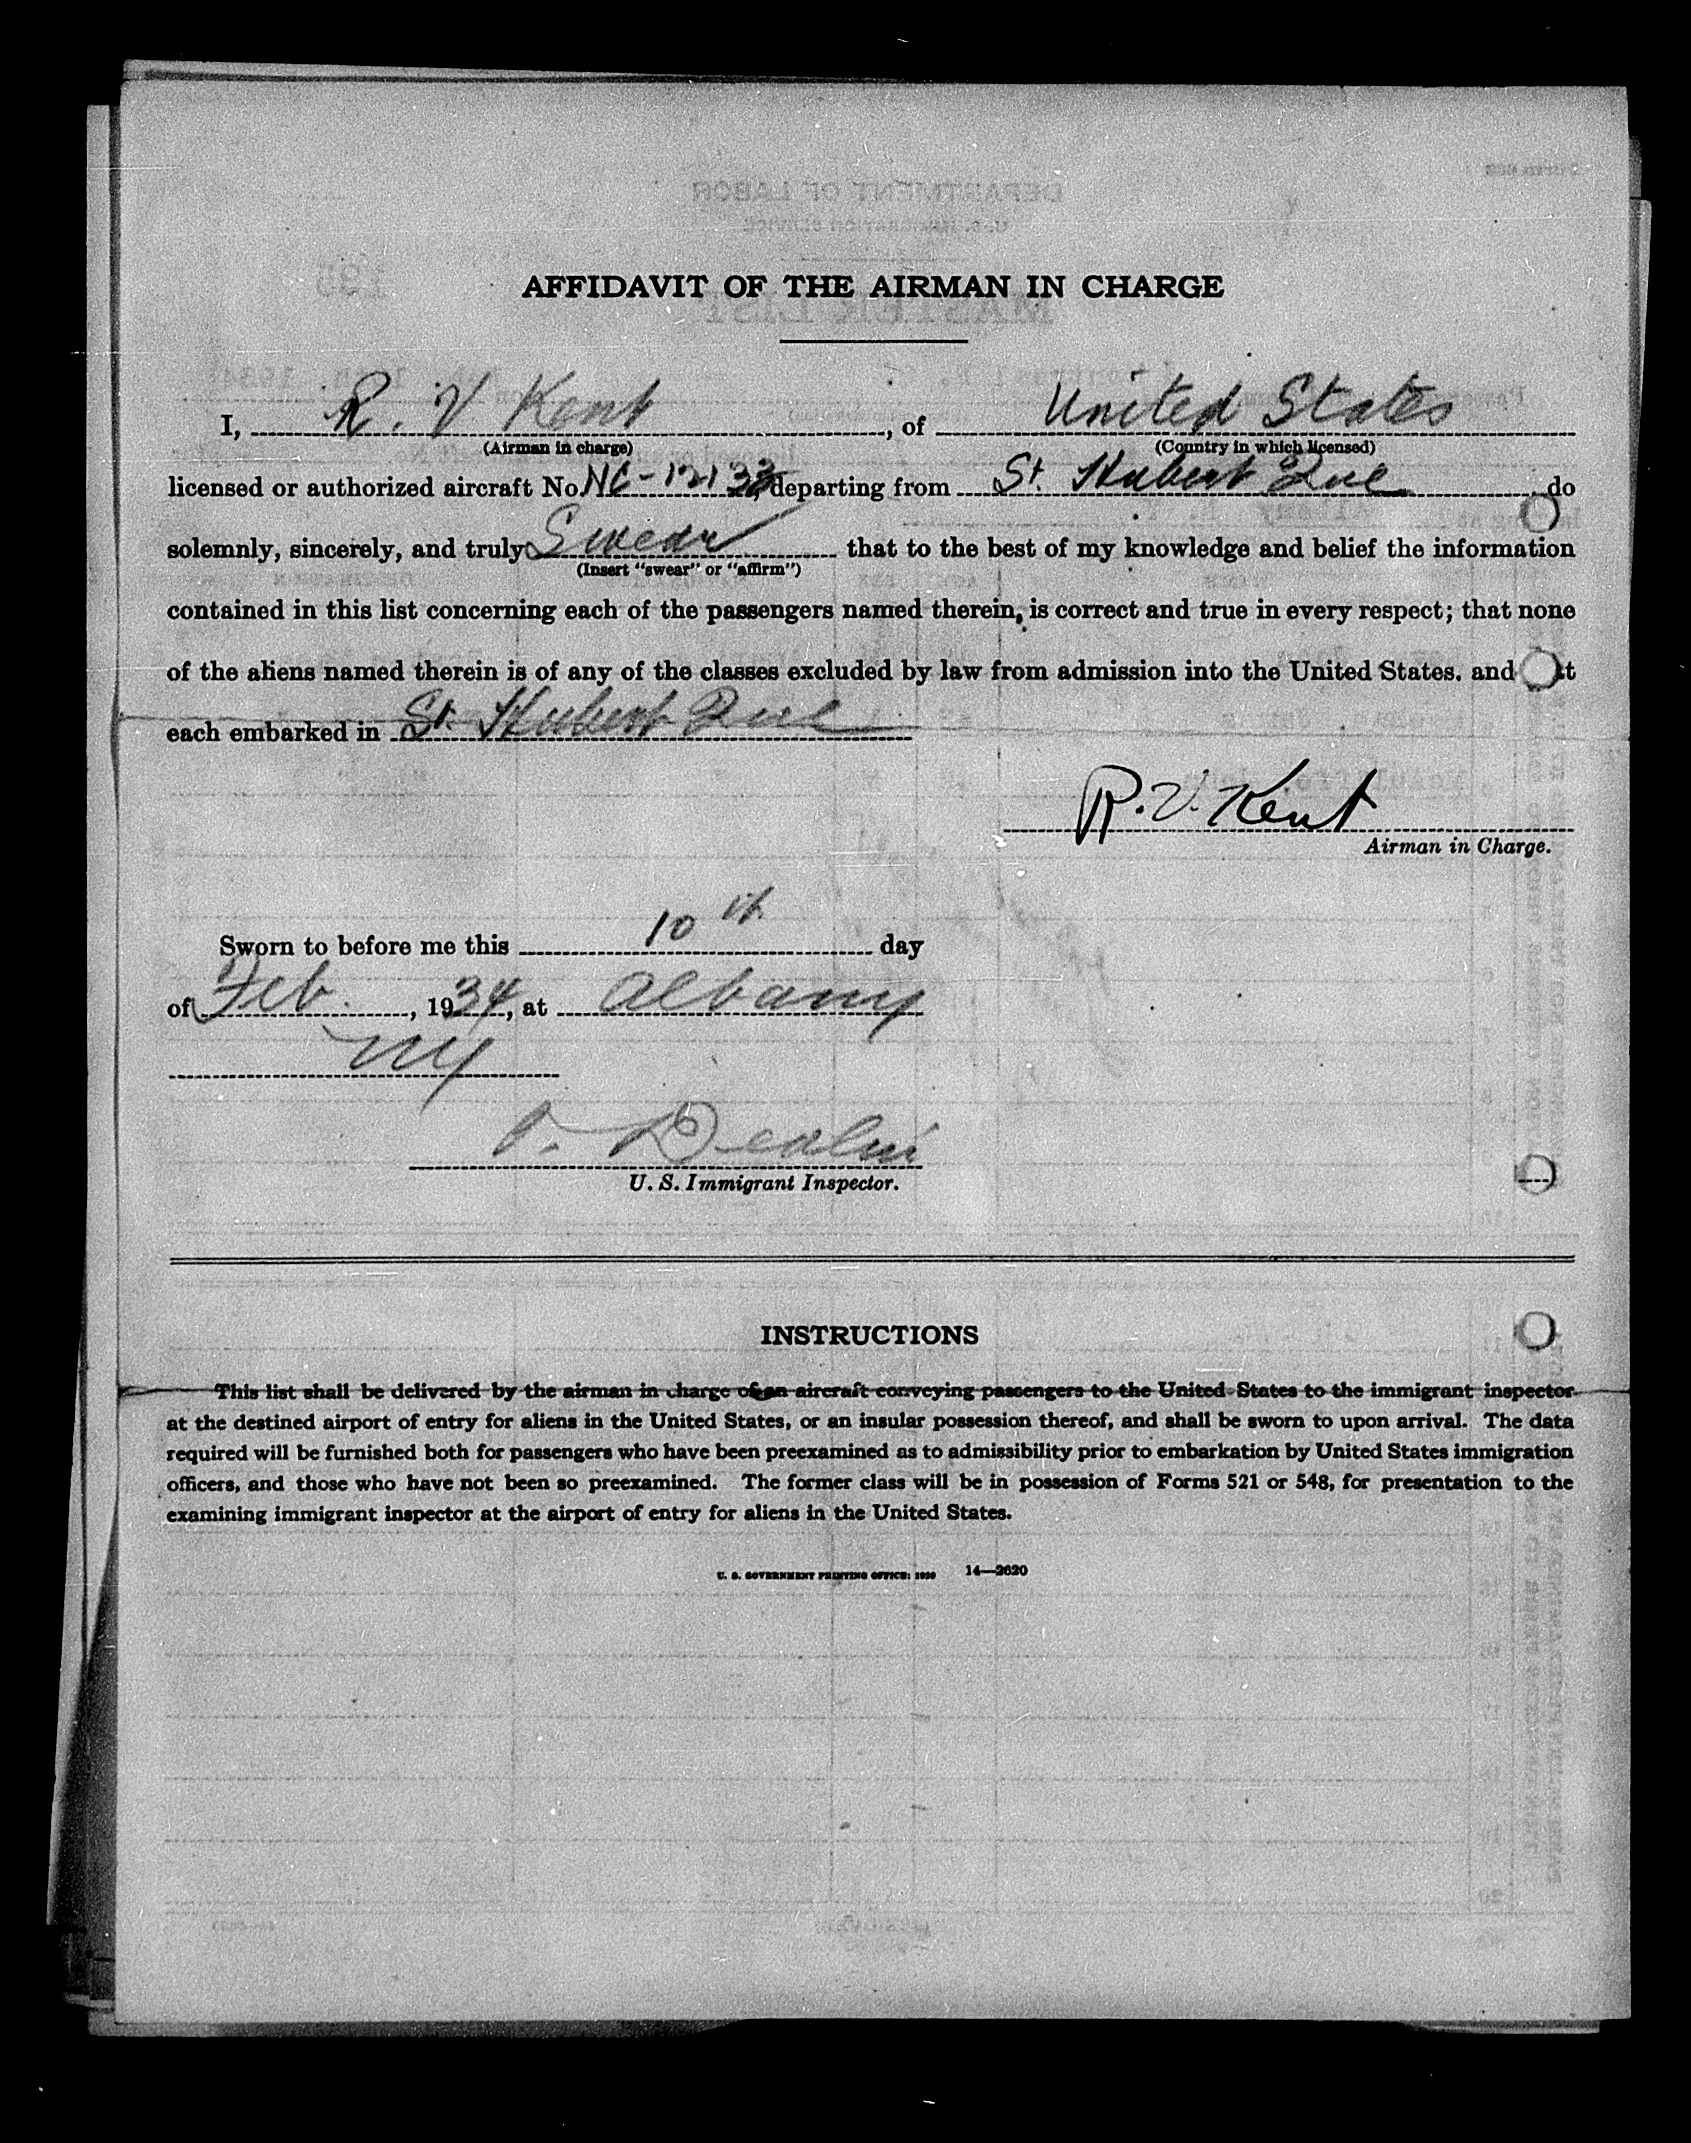 AFFIDAVIT OF THE AIRMAN IN CHARGE
I, R. V Kent, of United States
(Airman in charge) (Country in which licensed)
licensed or authorized aircraft No. NC-12133 departing from St. Hubert Que do
solemnly, sincerely, and truly Swear that to the best of my knowledge and belief the information
(Insert "swear" or "affirm")
contained in this list concerning each of the passengers named therein, is correct and true in every respect; that none
of the aliens named therein is of any of the classes excluded by law from admission into the United States, and t
each embarked in St. Hubert Que
R. V. Kent
Airman in Charge.
Sworn to before me this 10th day
of Feb., 1934, at Albany
NY
U. S. Immigrant Inspector.
INSTRUCTIONS
This list shall be delivered by the airman in charge of an aircraft conveying passengers to the United States to the immigrant inspector
at the destined airport of entry for aliens in the United States, or an insular possession thereof, and shall be sworn to upon arrival. The data
required will be furnished both for passengers who have been preexamined as to admissibility prior to embarkation by United States immigration
officers, and those who have not been so preexamined. The former class will be in possession of Forms 521 or 548, for presentation to the
examining immigrant inspector at the airport of entry for aliens in the United States.
U. S. GOVERNMENT PRINTING OFFICE: 14—2620